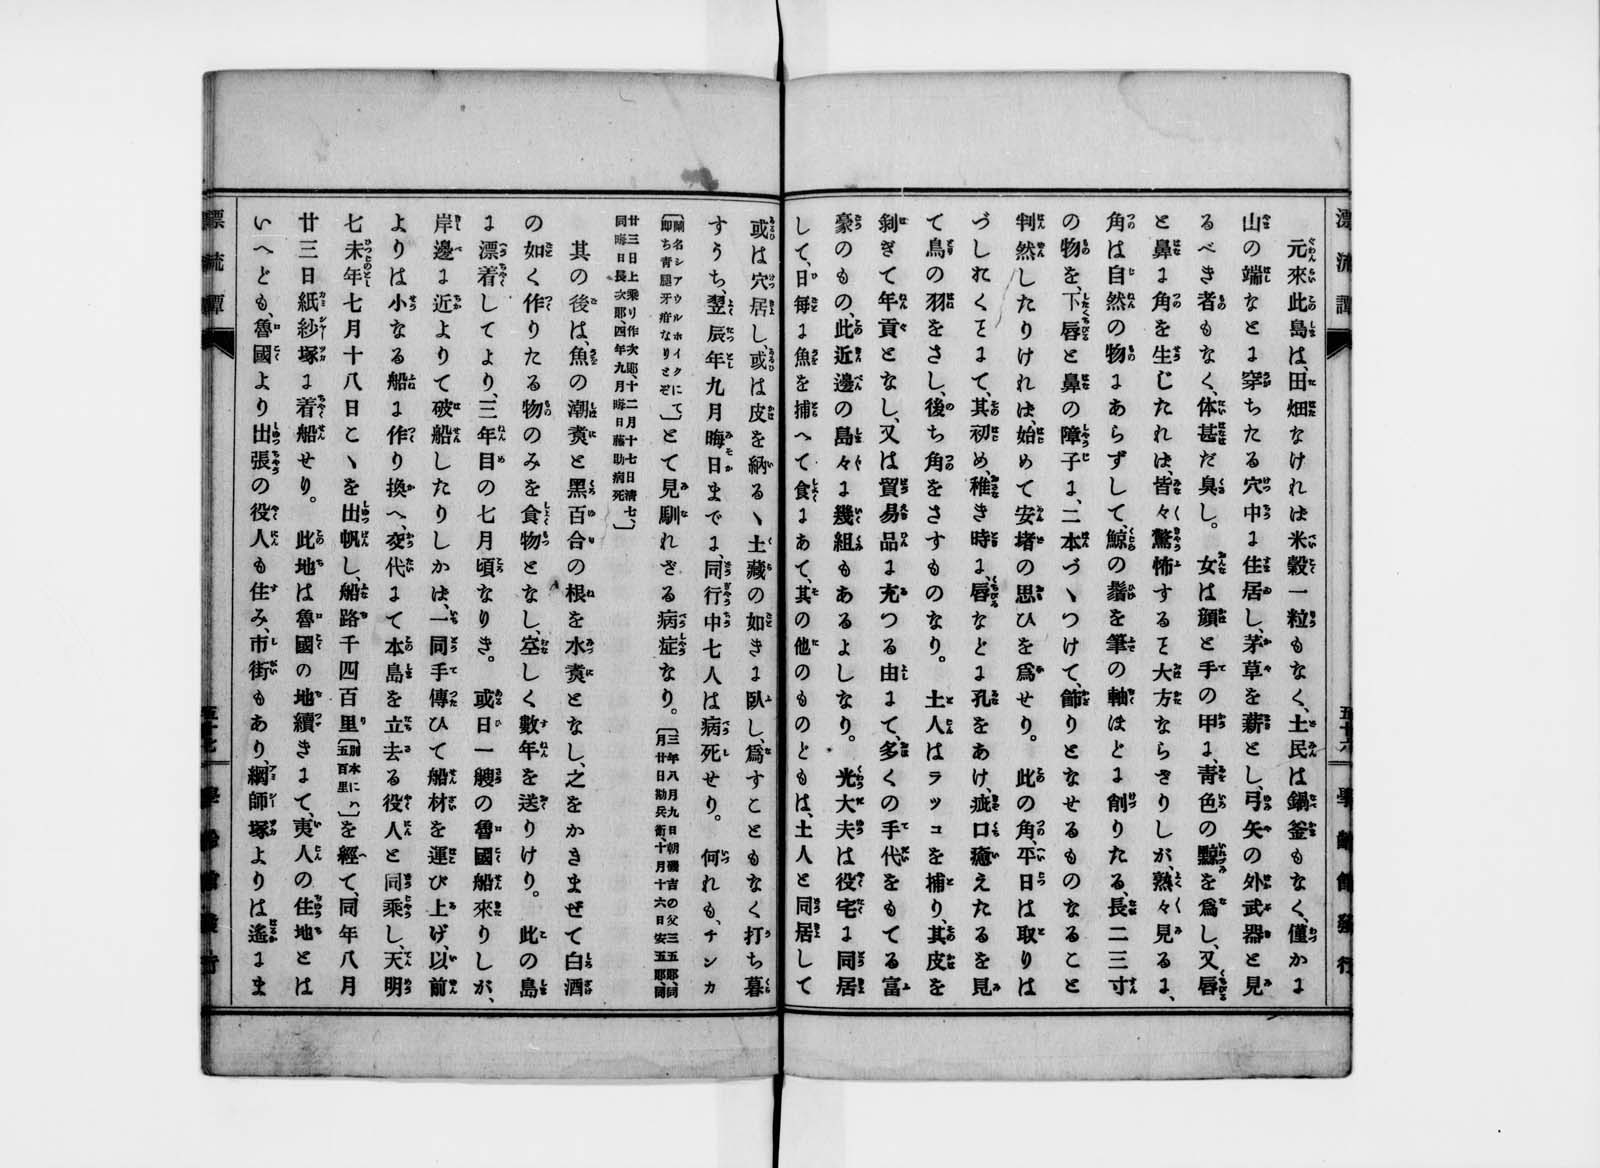 漂流譚
元來此島は、田畑なけれは米穀一粒もなく、土民は鍋釜もなく、僅かに
山の端なとに穿ちたる穴中に住居し、茅草を薪とし、弓矢の外武器と見
るべき者もなく、体甚だ臭し。女は顔と手の甲に、青色の黥を爲し、又唇
と鼻に角を生じたれは、皆々驚怖すると大方ならさりしが、熟々見るに、
角は自然の物にあらずして、鯨の鬚を筆の軸ほとに削りたる、長二三寸
の物を、下唇と鼻の障子に、二本づゝつけて、飾りとなせるものなること
判然したりけれは、始めて安堵の思ひを爲せり。此の角、平日は取りは
づしれくとにて、其初め、稚き時に、唇なとに孔をあけ、疵口癒えたるを見
て鳥の羽をさし、後ち角をさすものなり。土人はラッコを捕り、其皮を
剝ぎて年貢となし、又は貿易品に充つる由にて、多くの手代をもてる富
豪のもの、此近邊の島々に幾組もあるよしなり。光大夫は役宅に同居
して、日毎に魚を捕へて食にあて、其の他のものともは、土人と同居して
五十六
學齢館發行
或は穴居し、或は皮を納るゝ土藏の如きに臥し、爲すこともなく打ち暮
すうち、翌辰年九月晦日までに、同行中七人は病死せり。何れも、チンカ
〔蘭名シアウルホイクにて
即ち青腿牙疳なりとぞ〕とて見馴れざる病症なり。〔三年八月九日朝磯吉の父三五郎、同
月廿日勘兵衛、十月十六日安五郎、同
廿三日上乘り作次郎、十二月十七日淸七、
同晦日長次郎、四年九月晦日藤助病死〕
其の後は、魚の潮煑と黑百合の根を水煑となし、之をかきまぜて白酒
の如く作りたる物のみを食物となし、空しく數年を送りけり。此の島
に漂着してより、三年目の七月頃なりき。或日一艘の魯國船來りしが、
岸邊に近よりて破船したりしかは、一同手傳ひて船材を運び上げ、以前
よりは小なる船に作り換へ、交代にて本島を立去る役人と同乘し、天明
七未年七月十八日こゝを出帆し、船路千四百里〔別本に八
五百里〕を經て、同年八月
廿三日紙紗塚に着船せり。此地は魯國の地續きにて、夷人の住地とは
いへとも、魯國より出張の役人も住み、市街もあり、網師塚よりは遙にま
漂流譚
五十七
學齢館發行